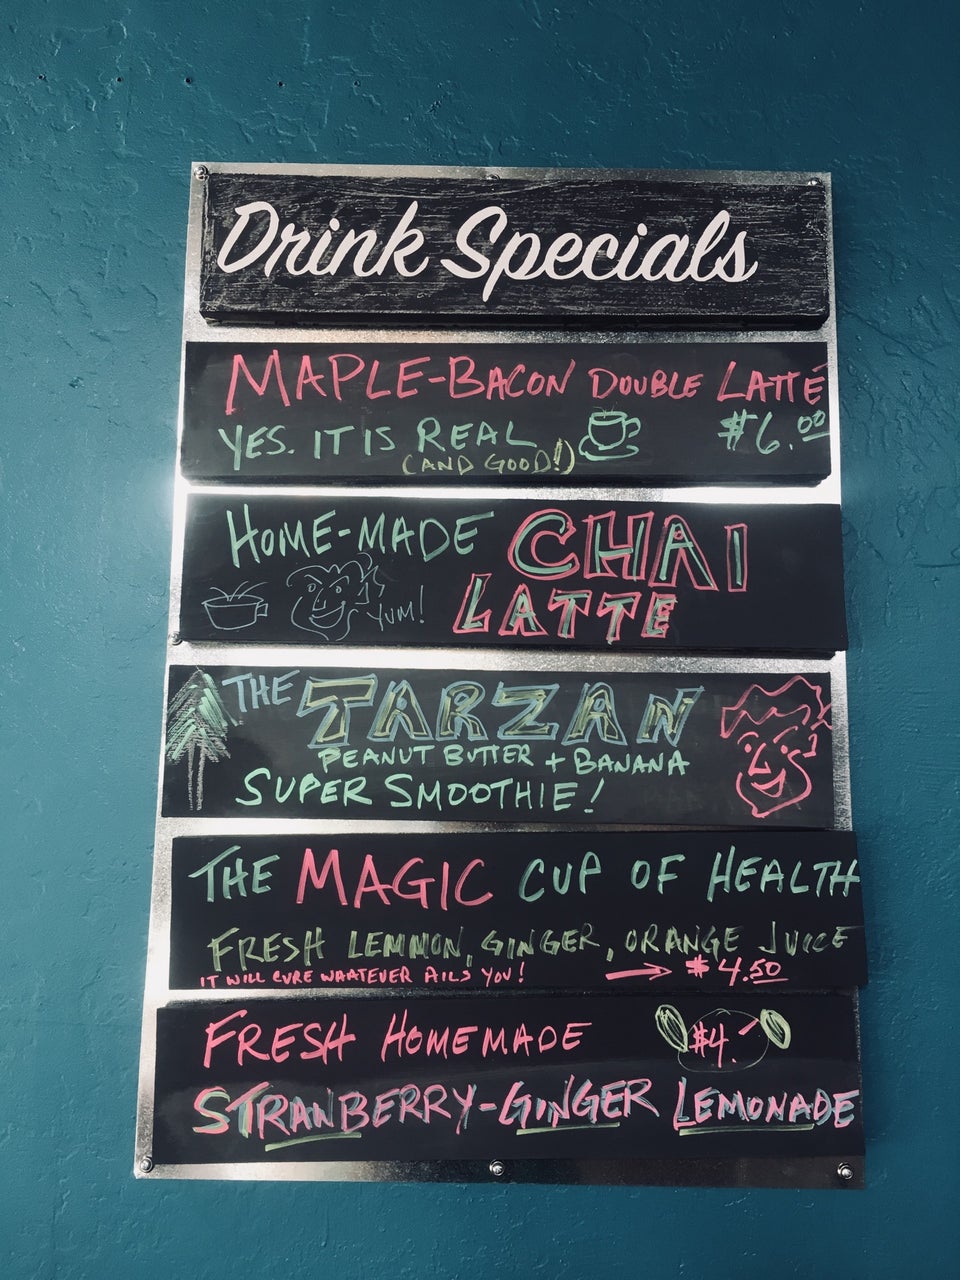 Drink Specials
MAPLE-BACON DOUBLE LATTÉ
YES. IT IS REAL $6.00
(AND GOOD!)
HOME-MADE CHAI
LATTE
YUM!
THE TARZAN
PEANUT BUTTER + BANANA
SUPER SMOOTHIE!
THE MAGIC CUP OF HEALTH
FRESH LEMMON, GINGER, ORANGE JUICE
IT WILL CURE WHATEVER AILS YOU! → $4.50
FRESH HOMEMADE $4.-
STRANBERRY-GINGER LEMONADE